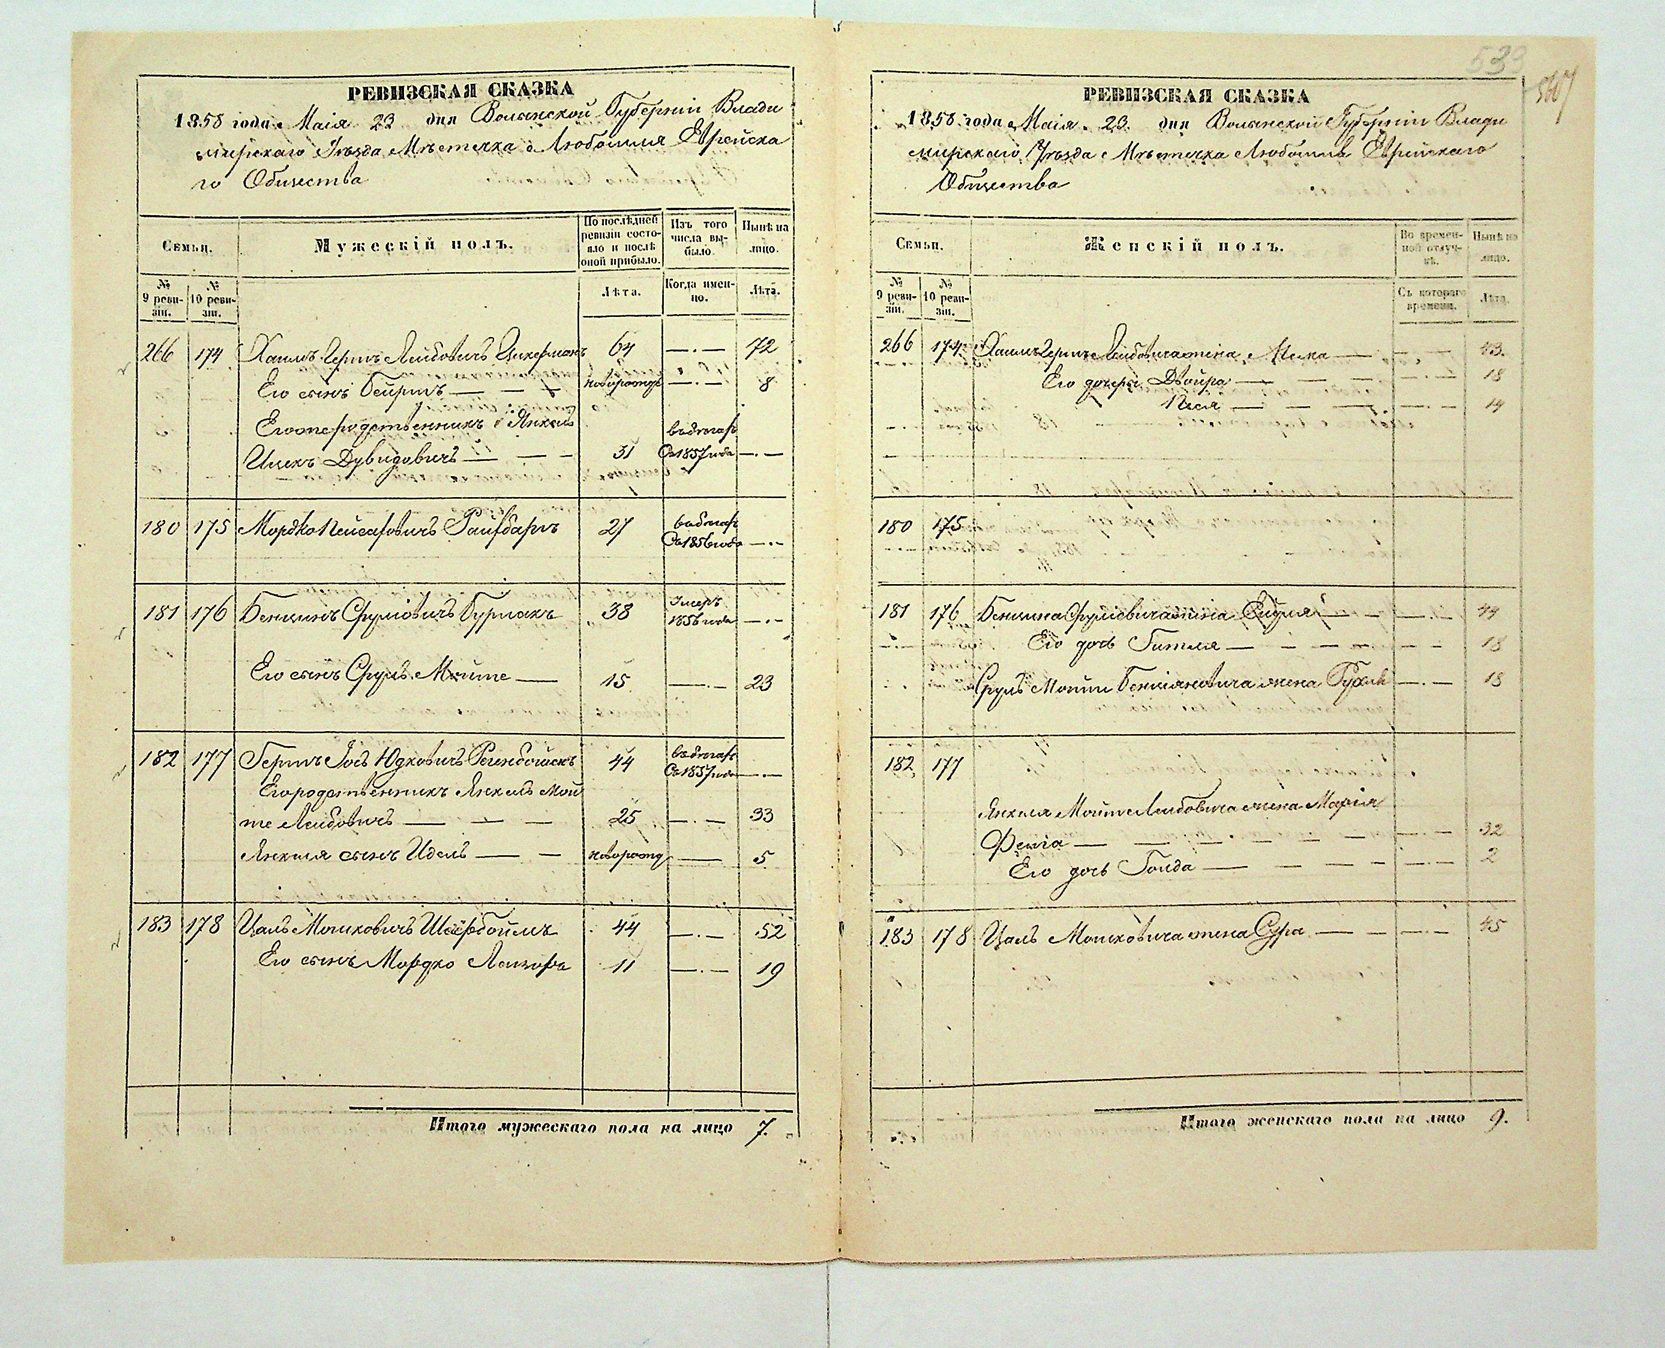 533
567
РЕВИЗСКАЯ СКАЗКА
1858 года Маія 23 дня Волынской Губерніи Влади
мирскаго Уѣзда Мѣстечка Любомля Еврейска
го Общества
Семьи.
Мужескій полъ.
По послѣдней ревизіи состояло и послѣ оной прибыло.
Изъ того числа выбыло.
Нынѣ на лицо.
№ 9 ревизіи.
№ 10 ревизіи.
Лѣта.
Когда именно.
Лѣта.
266 174 Хаимъ Гершъ Лейбовичъ 64 — . — 72
Его сынъ Бейришъ — новорожд — . — 8
Его родственникъ Янкель въ бѣгахъ
Ицекъ Дувидовичъ — 31 Съ 1857 года — . —
180 175 Мордко Пейсаховичъ въ бѣгахъ
27 Съ 1856 года — . —
181 176 Бенцинъ Срулювичъ Бурлакъ 38 Умеръ
1856 года — . —
Его сынъ Сруль Мойше — 15 — . — 23
182 177 Гершъ Іосъ Юдковичъ 44 въ бѣгахъ
Съ 1857 года — . —
Его родственникъ Янкель Мой
ше Лейбовичъ — 25 — . — 33
Янкеля сынъ Идель — новорожд — 5
183 178 Цаль Мошковичъ 44 — . — 52
Его сынъ Мордко Лейзоръ 11 — . — 19
Итого мужескаго пола на лицо 7.
РЕВИЗСКАЯ СКАЗКА
1858 года Маія 23 дня Волынской Губерніи Влади
мирскаго Уѣзда Мѣстечка Любомля Еврейскаго
Общества
Семьи.
Женскій полъ.
Во временной отлучкѣ.
Нынѣ на лицо.
№ 9 ревизіи.
№ 10 ревизіи.
Съ котораго времени.
Лѣта.
266 174 Хаимъ Герша Лейбовича жена — 43.
Его дочери Двойра — 18
Песя — 14
180 175
181 176 Бенцина Срулевича жена — 44
Его дочь Гитля — 18
Сруль Мойши Бенціановича жена — 18
182 177
Янкеля Мойше Лейбовича жена Марія
Фейга — 32
Его дочь Голда — 2
183 178 Цаль Мошковича жена Сура — 45
Итого женскаго пола на лицо 9.